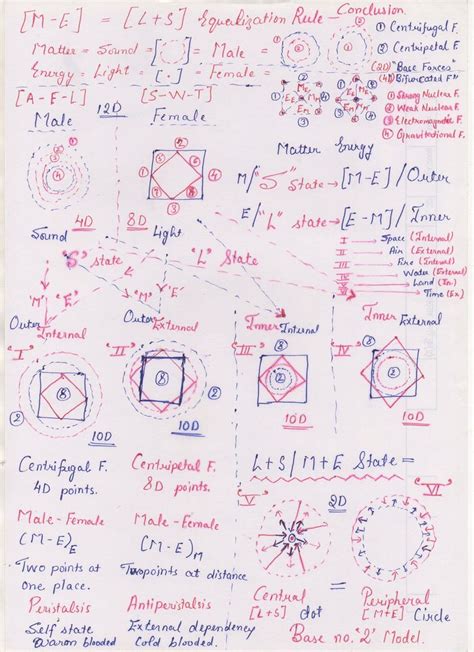 [M-E] = [L+S] Equalization Rule - Conclusion
Matter = Sound = = Male =
① Centrifugal F.
② Centripetal E.
Energy = Light = [·] = Female =
(2D) "Base Forces"
(4D) "Bifurcated F"
① Strong Nuclear F.
② Weak Nuclear F.
③ Electromagnetic F.
④ Gravitational F.
[A-E-L] 12D [S-W-T]
Male Female
Matter Energy
M/"S" State → [M-E]/Outer
E/"L" state → [E-M]/Inner
4D 8D
Sound Light
I Space (Internal)
II Air (External)
III Fire (Internal)
IV Water (External)
V Land (In.)
VI Time (Ex.)
"S" state "L" State
"M" "E" "M" "E"
Outer Internal
Outer External
Inner Internal
Inner External
"I" "II" "III" "IV"
⑧ ⑧ ② ②
2 2
10D 10D 10D 10D
Centrifugal F.
4D points.
Centripetal F.
8D points.
L+S/M+E State =
"V" 2D "VI"
Male-Female
(M-E)E
Two points at
one place.
Male-Female
(M-E)M
Two points at distance
Peristalsis
Self state
Waron blooded
Antiperistalsis
External dependency
Cold blooded.
Central = Peripheral
[L+S] dot [M+E] Circle
Base no. '2' Model.